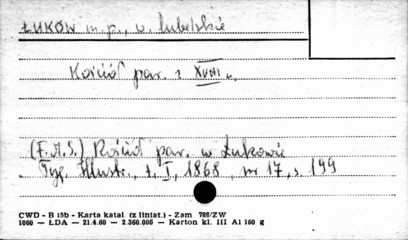 ŁUKÓW m. p., w. lubelskie
Kościół par. z XVIII w.
(F.M.S.) Kościół par. w Łukowie
Tyg. Illustr., t. I, 1868, nr 17, s. 199
CWD - B 15b - Karta katal. (z liniat.) - Zam 788/ZW
1060 — ŁDA — 21.4.60 — 2.360.000 — Karton kl. III A1 160 g